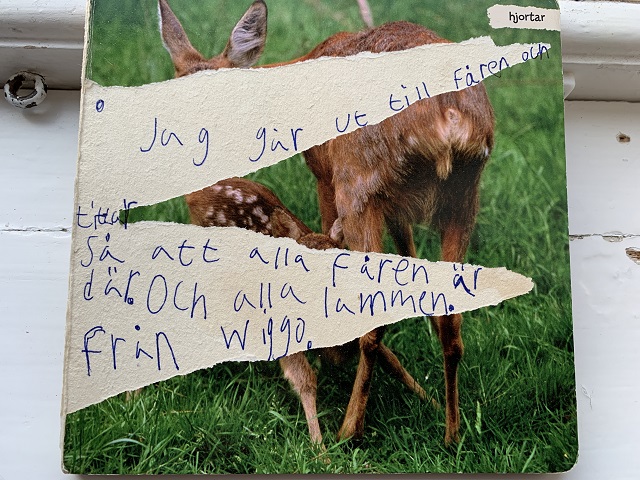 hjortar
Jag går ut till fåren och
tittar
så att alla fåren är
där. Och alla lammen.
från Wiggo.